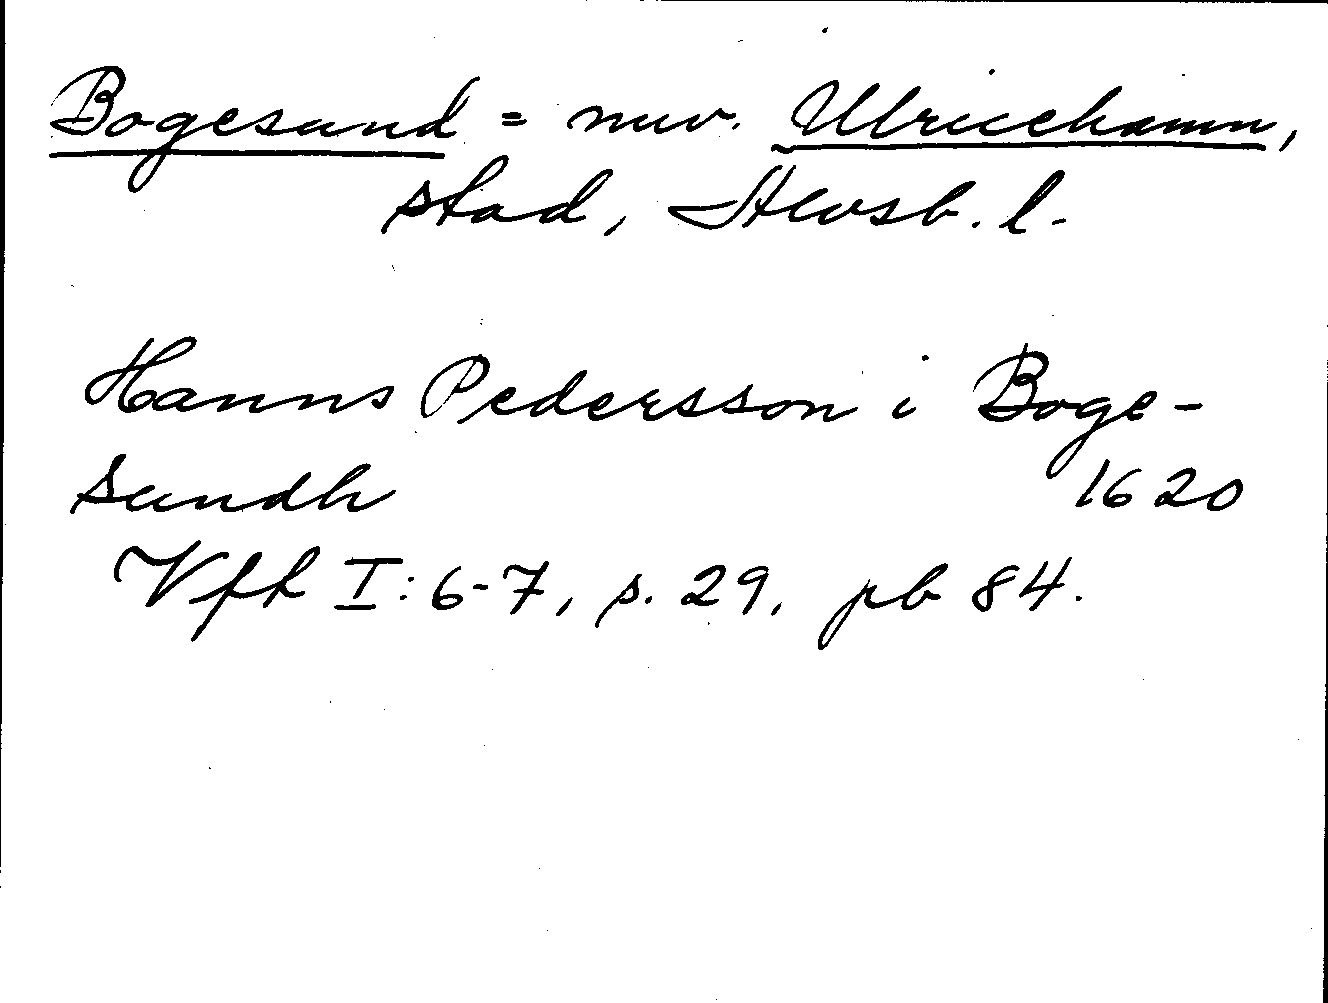 Bogesund = nuv. Ulricehamn,
stad, Älvsb. l.
Hanns Pedersson i Boge-
sundh 1620
Vfh I: 6-7, s. 29, pb 84.